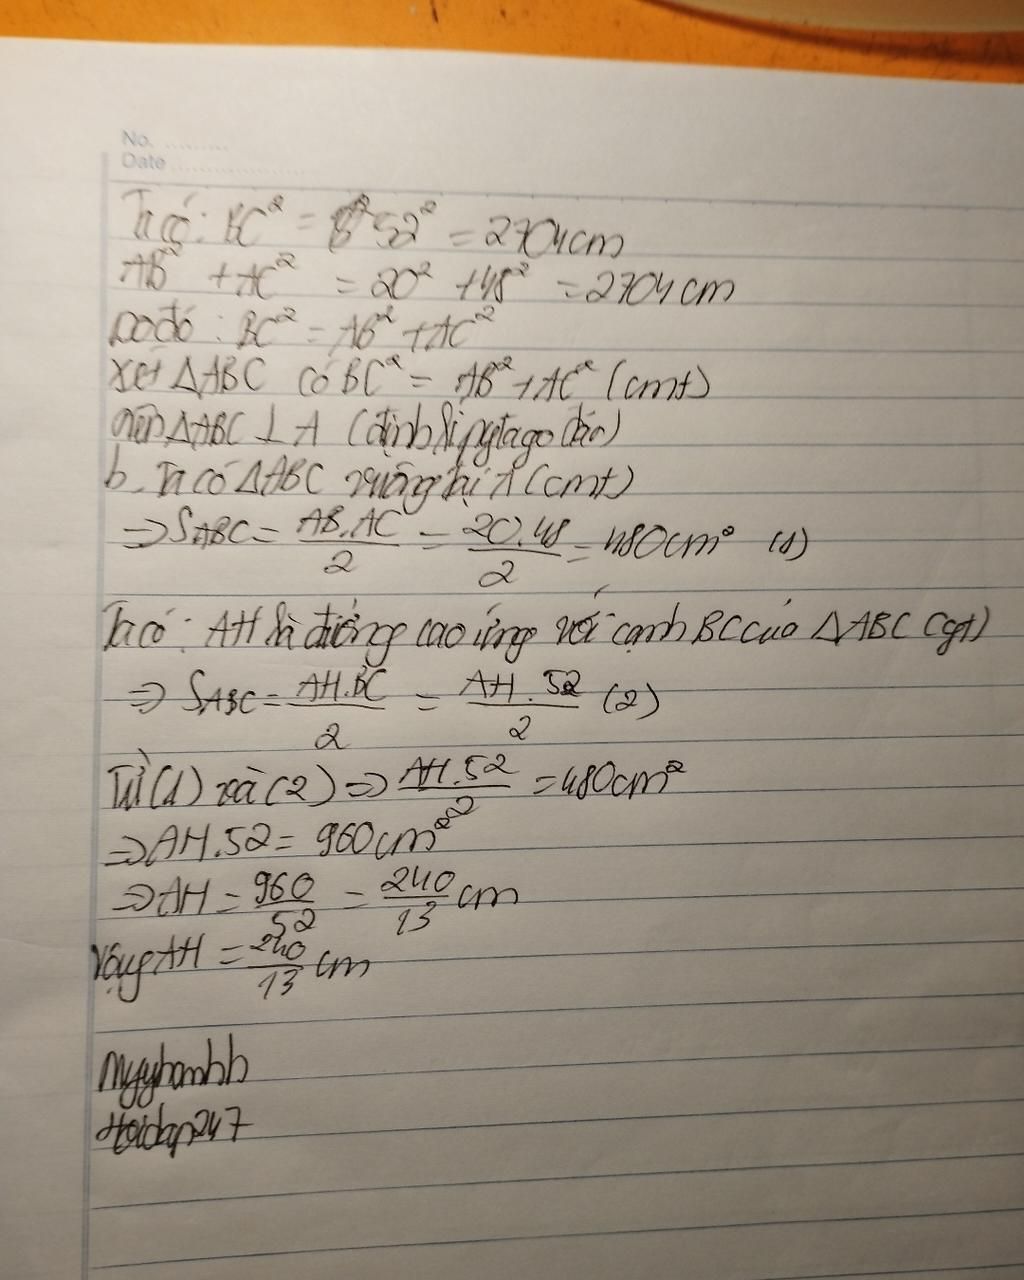 No. ..........
Date ....................
Ta có: BC² = 52² = 2704cm
AB² + AC² = 20² + 48² = 2704cm
Do đó: BC² = AB² + AC²
Xét ΔABC có BC² = AB² + AC² (cmt)
nên ΔABC ⊥ A (định lí pytago đảo)
b. Ta có ΔABC vuông tại A (cmt)
=> SABC = AB.AC/2 = 20.48/2 = 480cm² (1)
Ta có: AH là đường cao ứng với cạnh BC của ΔABC (gt)
=> SABC = AH.BC/2 = AH.52/2 (2)
Từ (1) và (2) => AH.52/2 = 480cm²
=> AH.52 = 960cm²
=> AH = 960/52 = 240/13 cm
Vậy AH = 240/13 cm
Hoidap247